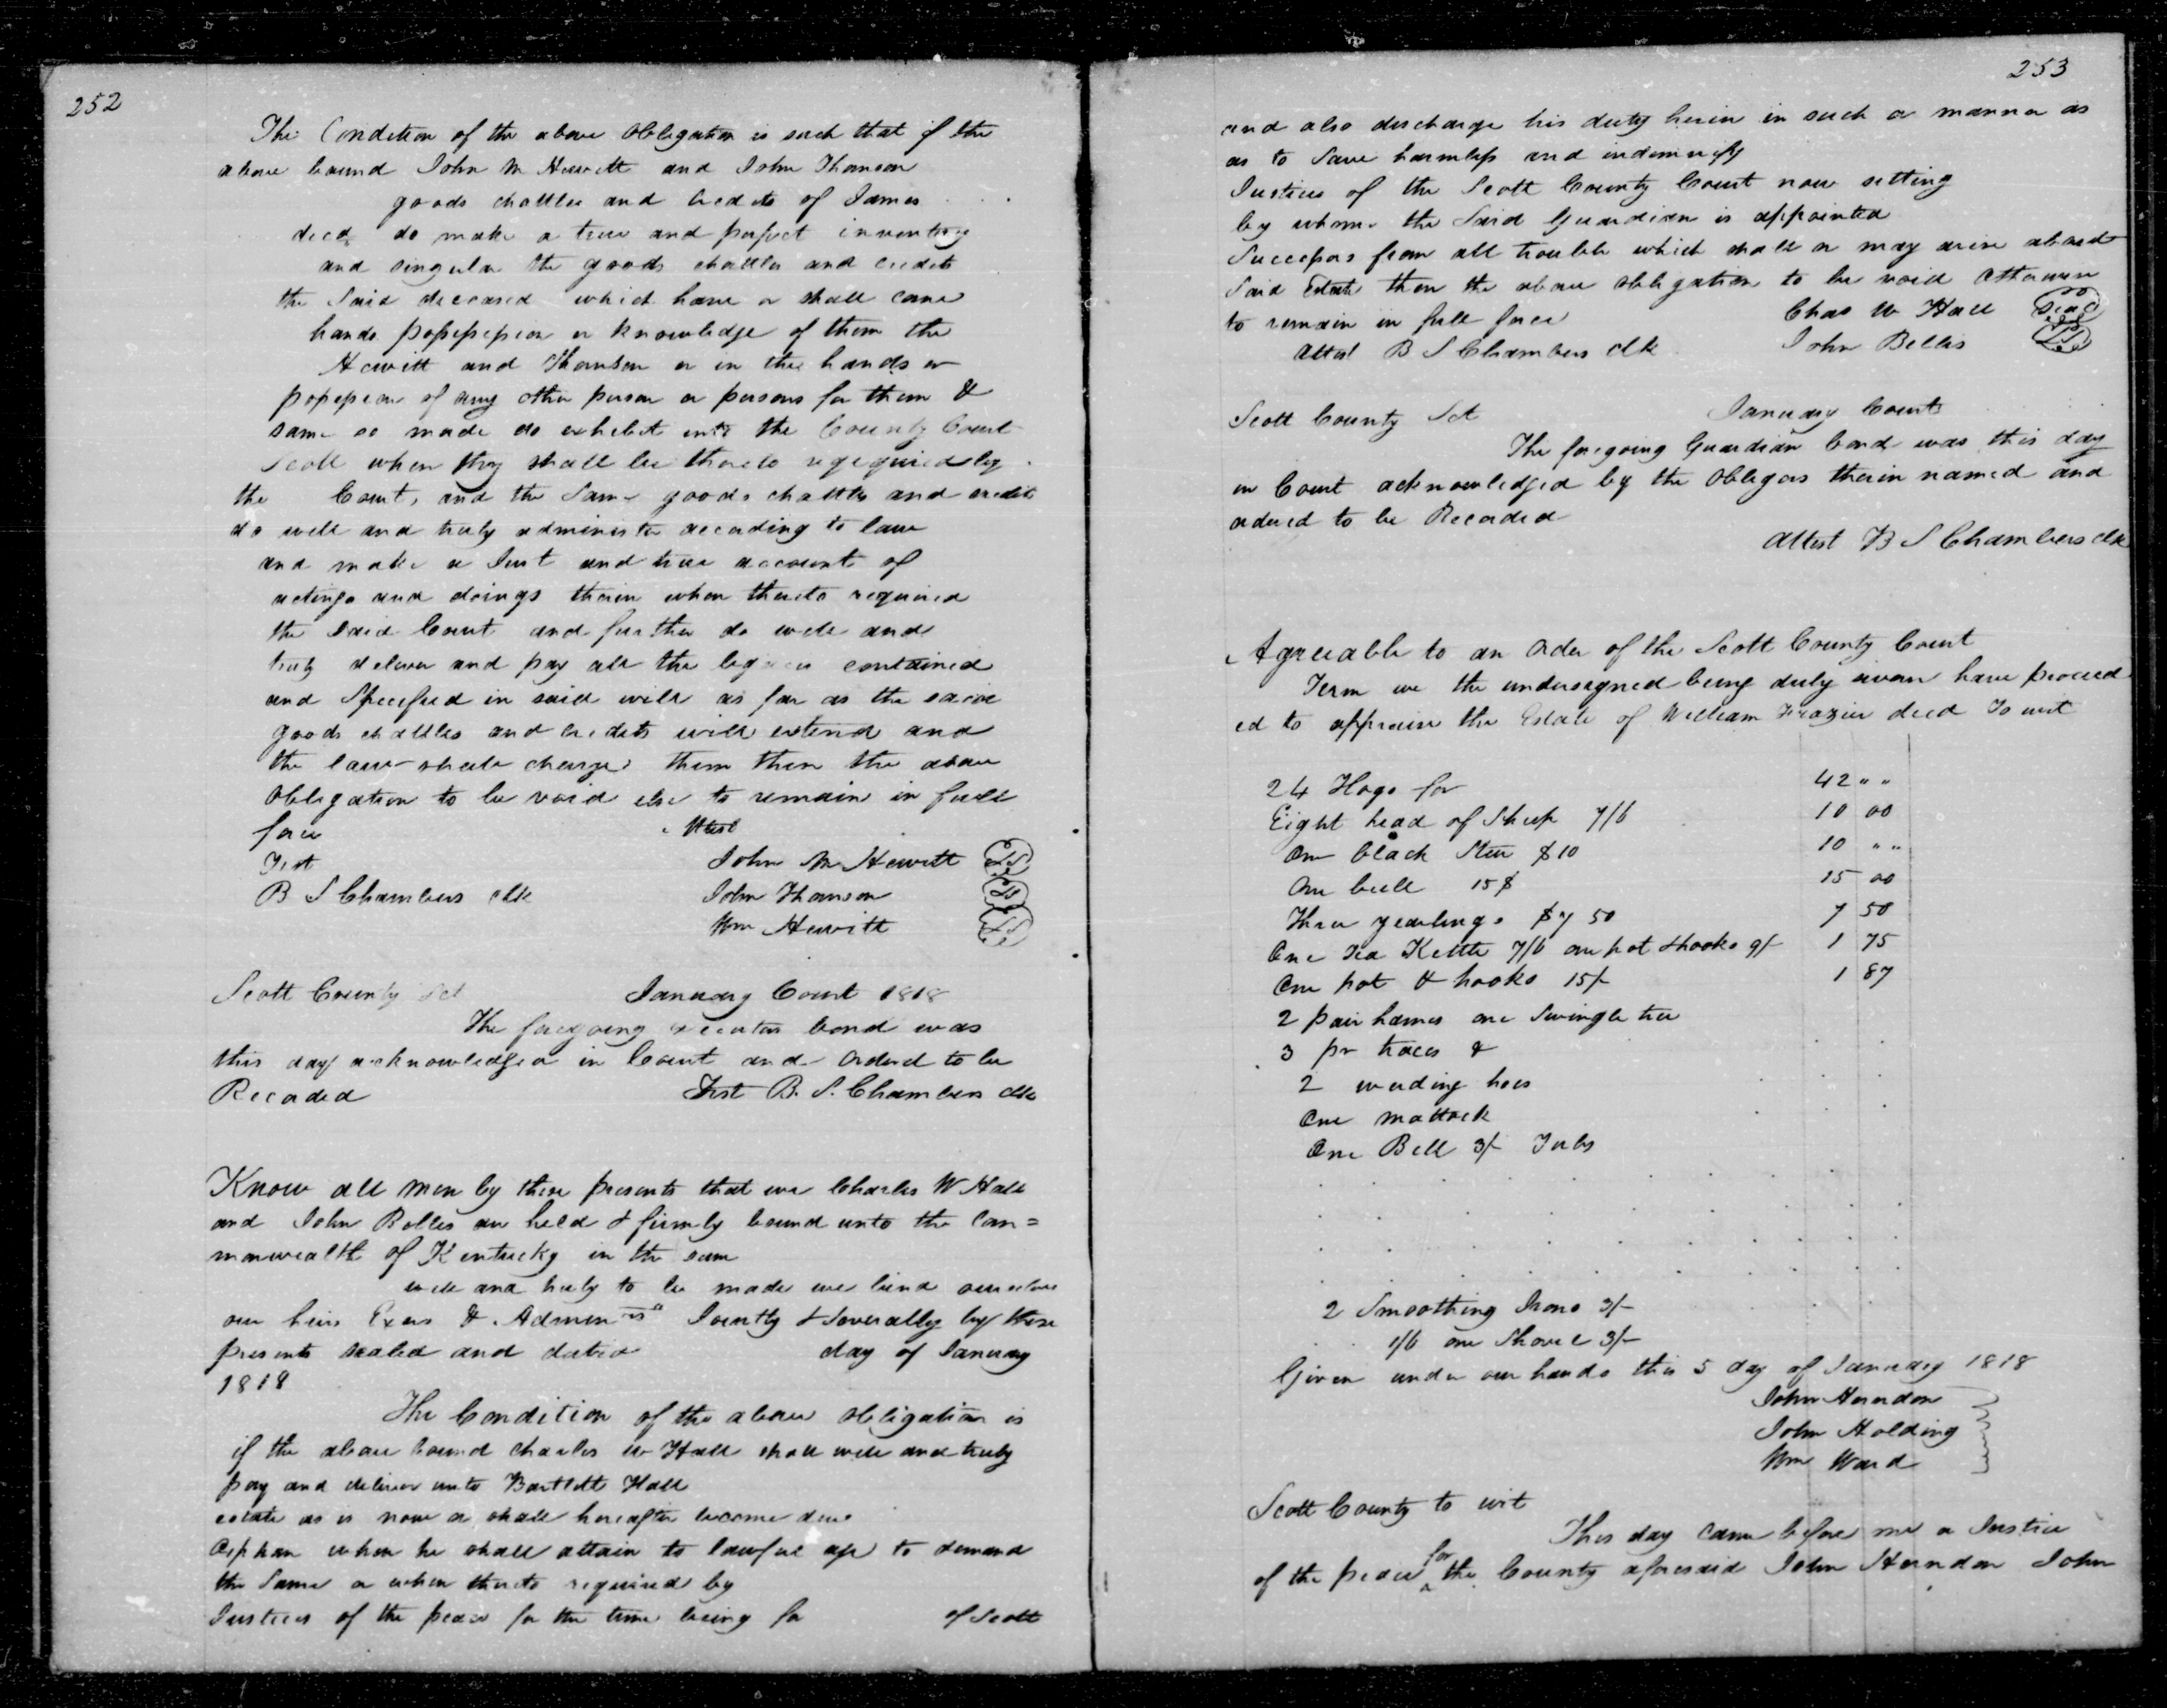 252
The Condition of the above Obligation is such that if the
above bound John M Hewitt and John Thomson
goods chattles and credits of James
decd do make a true and perfect inventory
and singular the goods chattles and credits
the Said deceased which have or shall come
hands possession or knowledge of them the
Hewitt and Thomson or in the hands or
possession of any other person or persons for them &
same so made do exhibit into the County Court
Scott when they shall be thereto required by
the Court, and the Same goods chattles and credits
do well and truly administer according to law
and make a Just and true account of
actings and doings therein when thereto required
the Said Court and further do well and
truly deliver and pay all the legacies contained
and Specified in said will as far as the said
goods chattles and credits will extend and
the law shall charge them then the above
Obligation to be void else to remain in full
force Attest
Test John M Hewitt LS
B S Chambers clk John Thomson LS
Wm Hewitt LS
Scott County Sct January Court 1818
The foregoing executors bond was
this day acknowledged in Court and Ordered to be
Recorded Test B. S. Chambers clk
Know all men by these presents that we Charles W Hall
and John Bolles are held & firmly bound unto the Com=
monwealth of Kentucky in the sum
well and truly to be made we bind ourselves
our heirs Exors & Admin rs Jointly & Severally by these
presents sealed and dated day of January
1818
The Condition of the above obligation is
if the above bound Charles W Hall shall well and truly
pay and deliver unto Bartlett Hall
estate as is now or shall hereafter become due
Orphan when he shall attain to lawful age to demand
the Same or when thereto required by
Justices of the peace for the time being for of Scott
253
and also discharge his duty herein in such a manner as
as to Save harmless and indemnify
Justices of the Scott County Court now sitting
by whom the Said Guardian is appointed
Successors from all trouble which shall or may arise about
Said Estate then the above Obligation to be void otherwise
to remain in full force Chas W Hall Seal
Attest B S Chambers clk John Belles LS
Scott County Sct January Court
The foregoing Guardian bond was this day
in Court acknowledged by the Obligors therein named and
ordered to be Recorded
Attest B S Chambers clk
Agreeable to an Order of the Scott County Court
Term we the undersigned being duly sworn have proceed
ed to appraise the Estate of William Frazier decd To wit
24 Hogs for 42 " "
Eight head of Sheep 7/6 10 00
One black Steer $10 10 " "
One bull 15$ 15 00
Three yearlings $7 50 7 50
One Tea Kettle 7/6 one pot & hooks 9/- 1 75
One pot & hooks 15/- 1 87
2 pair hames one Swingle tree
3 pr traces &
2 weeding hoes
One mattock
One Bell 3/- Tubs
2 Smoothing Irons 3/-
1/6 one Shovel 3/-
Given under our hands this 5 day of January 1818
John Herndon
John Holding
Wm Ward
Scott County to wit
This day came before me a Justice
of the peace for the County aforesaid John Herndon John